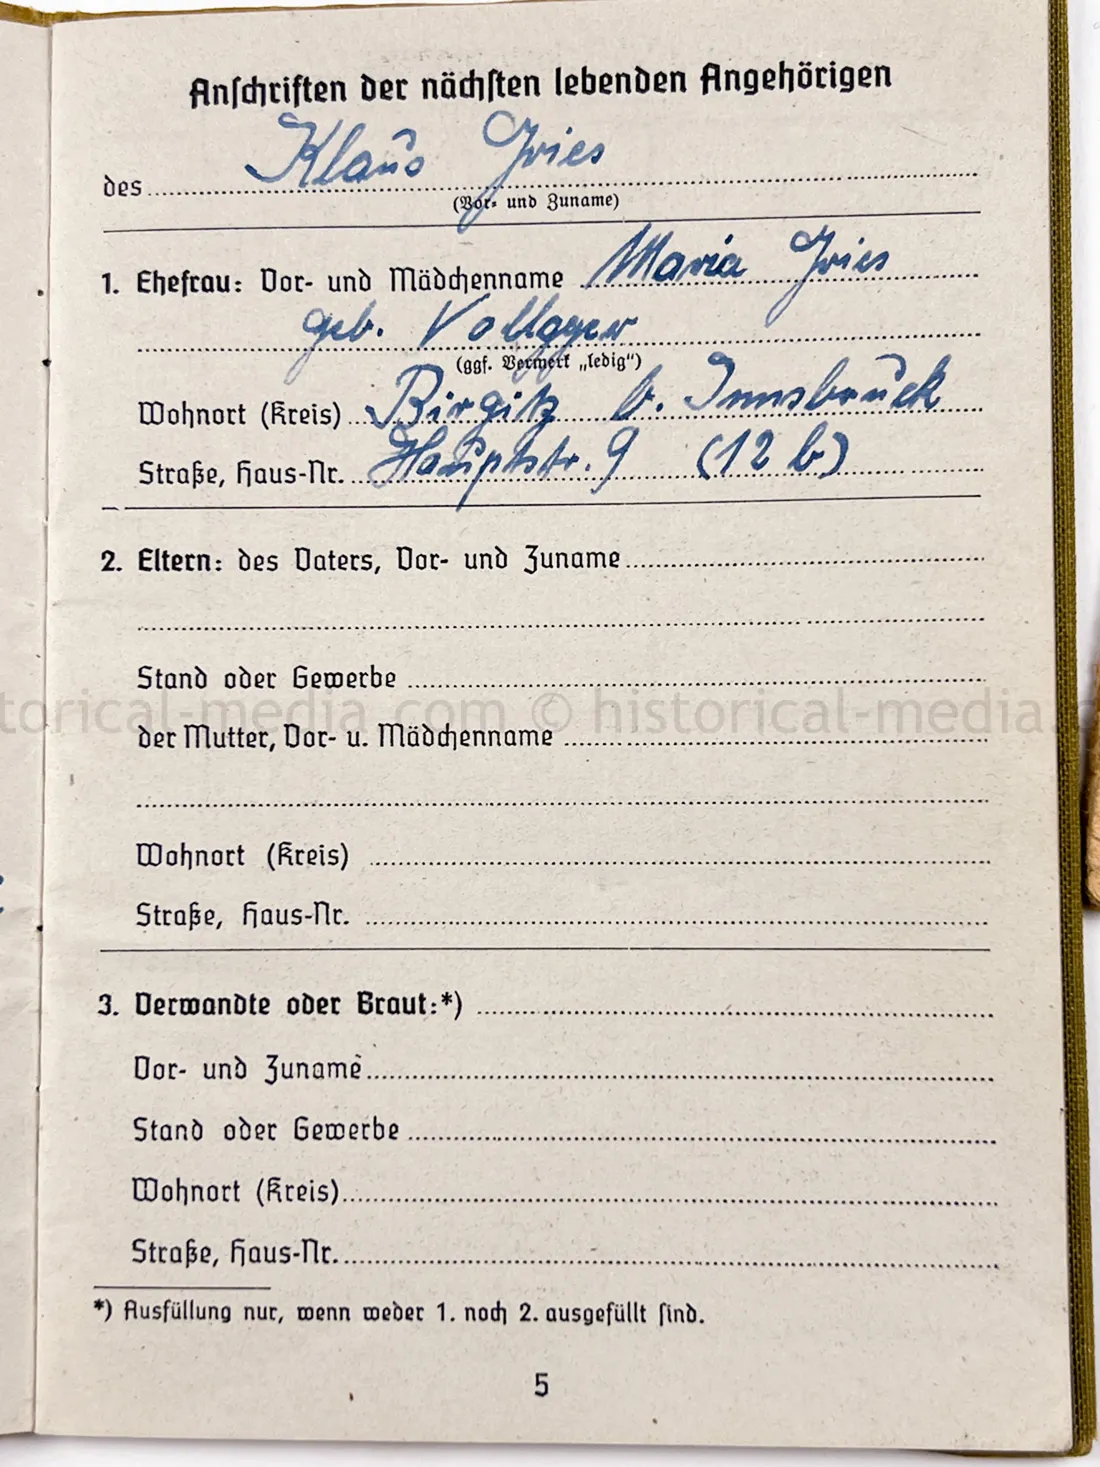 Anschriften der nächsten lebenden Angehörigen
des Klaus Fries
(Vor- und Zuname)
1. Ehefrau: Vor- und Mädchenname Maria Fries
geb. Vollgger
(ggf. Vermerk „ledig“)
Wohnort (Kreis) Birgitz b. Innsbruck
Straße, Haus-Nr. Hauptstr. 9 (12 b)
2. Eltern: des Vaters, Vor- und Zuname
Stand oder Gewerbe
torical-media.com © historical-media.
der Mutter, Vor- u. Mädchenname
Wohnort (Kreis)
Straße, Haus-Nr.
3. Verwandte oder Braut:*)
Vor- und Zuname
Stand oder Gewerbe
Wohnort (Kreis)
Straße, Haus-Nr.
*) Ausfüllung nur, wenn weder 1. noch 2. ausgefüllt sind.
5